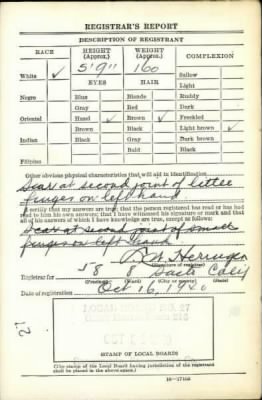 REGISTRAR'S REPORT
DESCRIPTION OF REGISTRANT
RACE HEIGHT (Approx.) WEIGHT (Approx.) COMPLEXION
5'9" 160
White ✓ Sallow
EYES HAIR Light
Negro Blue Blonde Ruddy
Gray Red Dark
Oriental Hazel ✓ Brown ✓ Freckled
Brown Black Light brown ✓
Indian Black Gray Dark brown
Bald Black
Filipino
Other obvious physical characteristics that will aid in identification
Scar at second joint of little
finger on left hand
I certify that my answers are true; that the person registered has read or has had
read to him his own answers; that I have witnessed his signature or mark and that
all of his answers of which I have knowledge are true, except as follows:
Scar at second joint of small
finger on left hand
Heringer
(Signature of registrar)
Registrar for 58 8 Sacto Calif
(Precinct) (Ward) (City or county) (State)
Date of registration Oct 16, 1940
LOCAL BOARD NO. 27
STAMP OF LOCAL BOARDS
(The stamp of the Local Board having jurisdiction of the registrant
shall be placed in the above space.)
27
16—17105